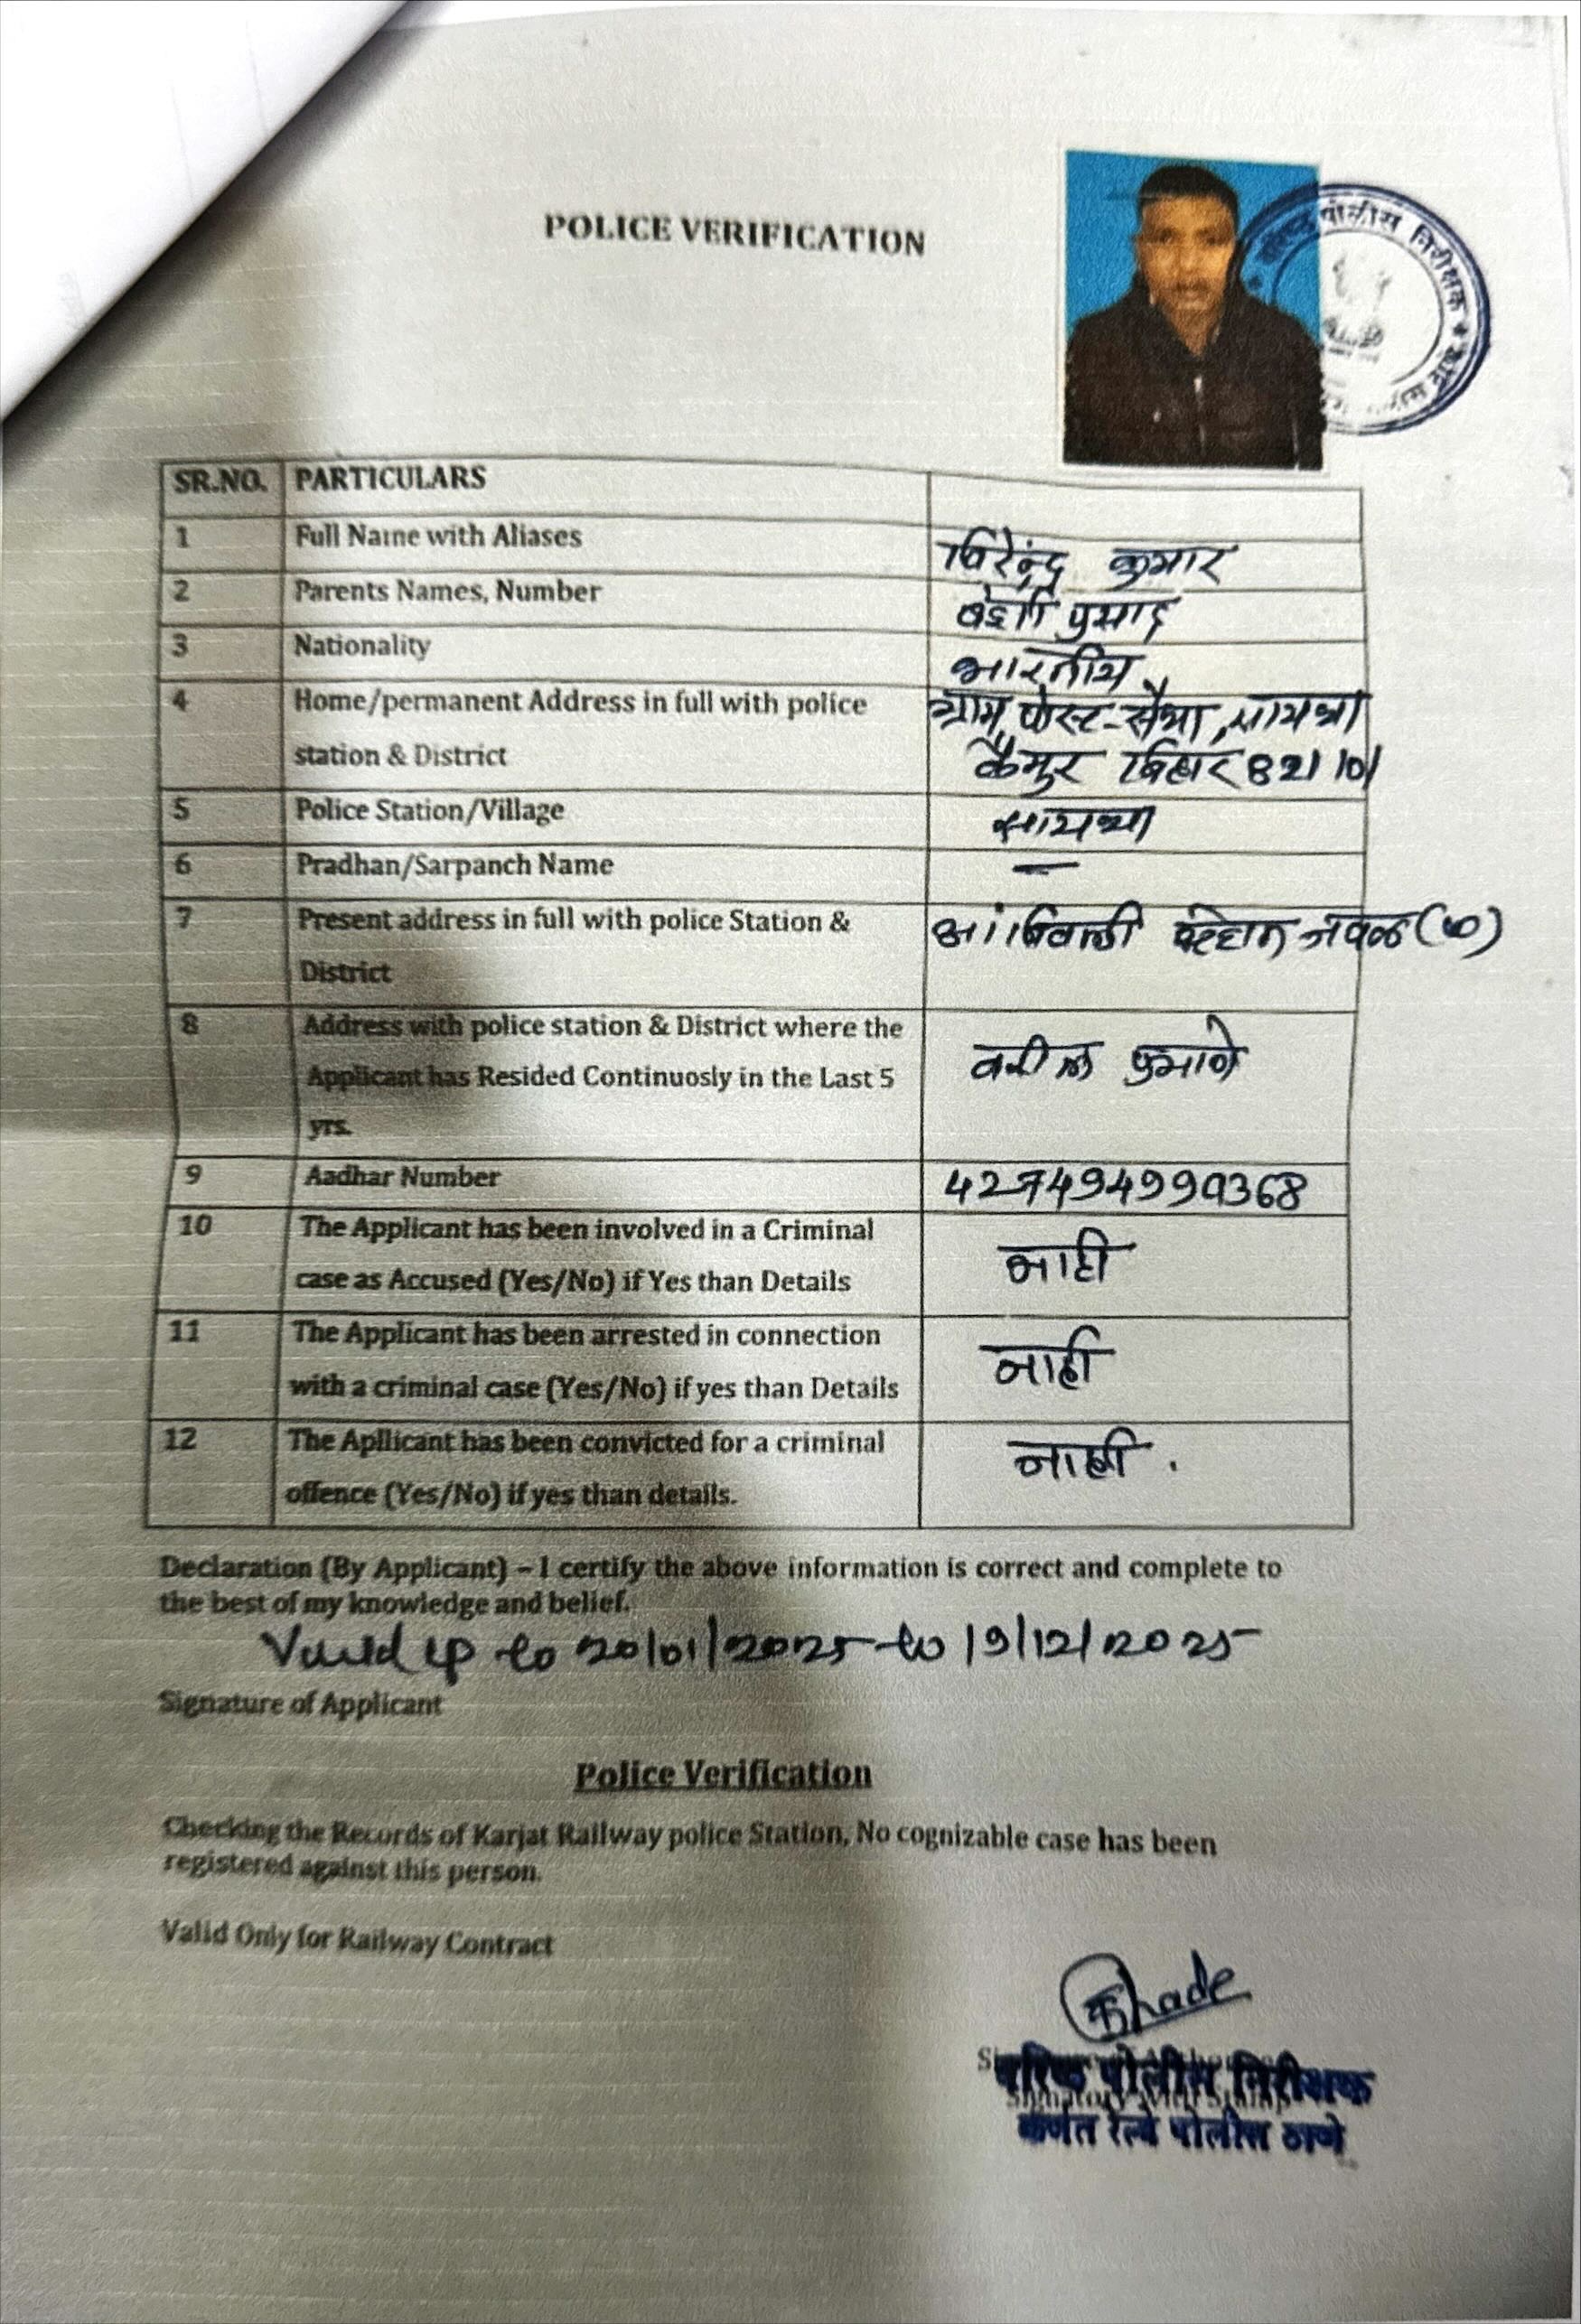 POLICE VERIFICATION
पोलीस निरीक्षक
SR.NO. PARTICULARS
1 Full Name with Aliases विरेन्द्र कुमार
2 Parents Names, Number प्रसाद
3 Nationality भारतीय
4 Home/permanent Address in full with police ग्राम, पोस्ट-
station & District कैमुर बिहार 821101
5 Police Station/Village
6 Pradhan/Sarpanch Name —
7 Present address in full with police Station & आंबिवली स्टेशन जवळ (पू)
District
8 Address with police station & District where the
Applicant has Resided Continuosly in the Last 5 वरील प्रमाणे
yrs.
9 Aadhar Number 427494999368
10 The Applicant has been involved in a Criminal नाही
case as Accused (Yes/No) if Yes than Details
11 The Applicant has been arrested in connection नाही
with a criminal case (Yes/No) if yes than Details
12 The Apllicant has been convicted for a criminal नाही.
offence (Yes/No) if yes than details.
Declaration (By Applicant) – I certify the above information is correct and complete to
the best of my knowledge and belief.
Valid up to 20/01/2025 to 19/12/2025
Signature of Applicant
Police Verification
Checking the Records of Karjat Railway police Station, No cognizable case has been
registered against this person.
Valid Only for Railway Contract
वरिष्ठ पोलीस निरीक्षक
Signatory with Stamp
कर्जत रेल्वे पोलीस ठाणे